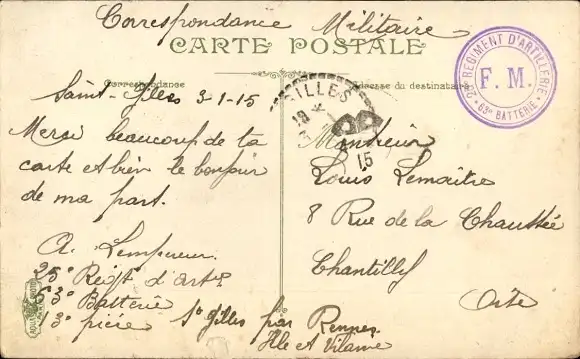 Correspondance Militaire
CARTE POSTALE
Correspondance
Adresse du destinataire
Saint-Gilles 3-1-15
Merci beaucoup de ta
carte et bien le bonjour
de ma part.
A. Lempereur.
25e Régt d'Artie
63e Batterie
13e pièce St Gilles par Rennes.
Ille et Vilaine
Monsieur
Louis Lemaitre
8 Rue de la Chaussée
Chantilly
Oise
GILLES
15
RÉGIMENT D'ARTILLERIE
F. M.
63e BATTERIE